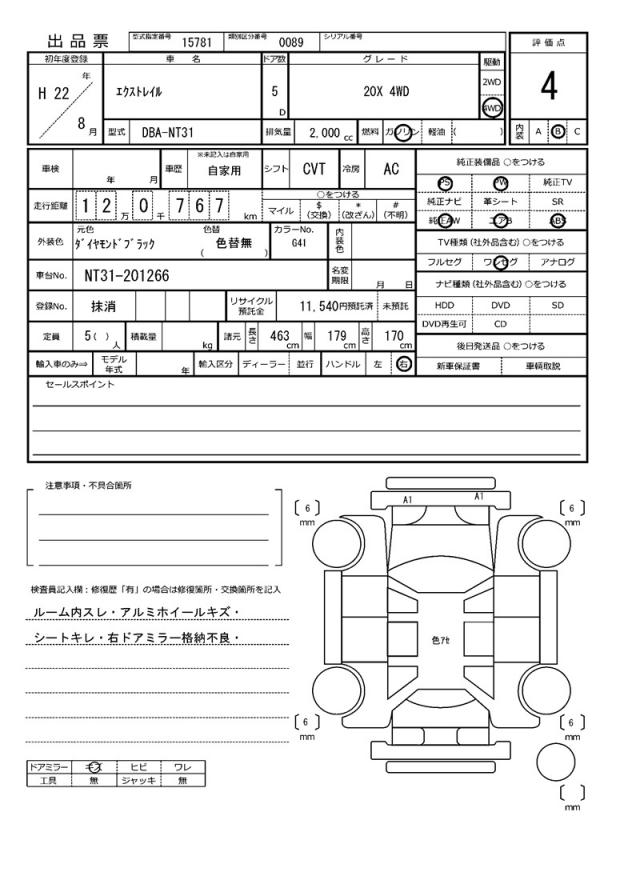 出品票 型式指定番号 15781 類別区分番号 0089 シリアル番号
評価点
4
初年度登録 車名 ドア数 グレード 駆動
H 22 年 8 月 エクストレイル 5 D 20X 4WD 2WD 4WD
型式 DBA-NT31 排気量 2,000 cc 燃料 ガソリン 軽油 ( ) 内装 A B C
車検 年 月 車歴 ※未記入は自家用 自家用 シフト CVT 冷房 AC
純正装備品 ○をつける
PS PW 純正TV
純正ナビ 革シート SR
純正AW エアB ABS
走行距離 1 2 万 0 千 7 6 7 km ○をつける
マイル $(交換) *(改ざん) #(不明)
TV種類(社外品含む)○をつける
フルセグ ワンセグ アナログ
外装色 元色 ダイヤモンドブラック 色替 ( 色替無 ) カラーNo. G41 内装色
車台No. NT31-201266 名変期限 月 日
ナビ種類(社外品含む)○をつける
HDD DVD SD
DVD再生可 CD
登録No. 抹消 リサイクル預託金 11,540円預託済 未預託
定員 5( ) 人 積載量 kg 諸元 長さ 463 cm 幅 179 cm 高さ 170 cm
後日発送品 ○をつける
新車保証書 車輌取説
輸入車のみ⇒ モデル年式 年 輸入区分 ディーラー 並行 ハンドル 左 右
セールスポイント
注意事項・不具合箇所
検査員記入欄:修復歴「有」の場合は修復箇所・交換箇所を記入
ルーム内スレ・アルミホイールキズ・
シートキレ・右ドアミラー格納不良・
ドアミラー キズ ヒビ ワレ
工具 無 ジャッキ 無
A1 A1
[ 6 ] mm [ 6 ] mm
色アセ
[ 6 ] mm [ 6 ] mm
[ ] mm